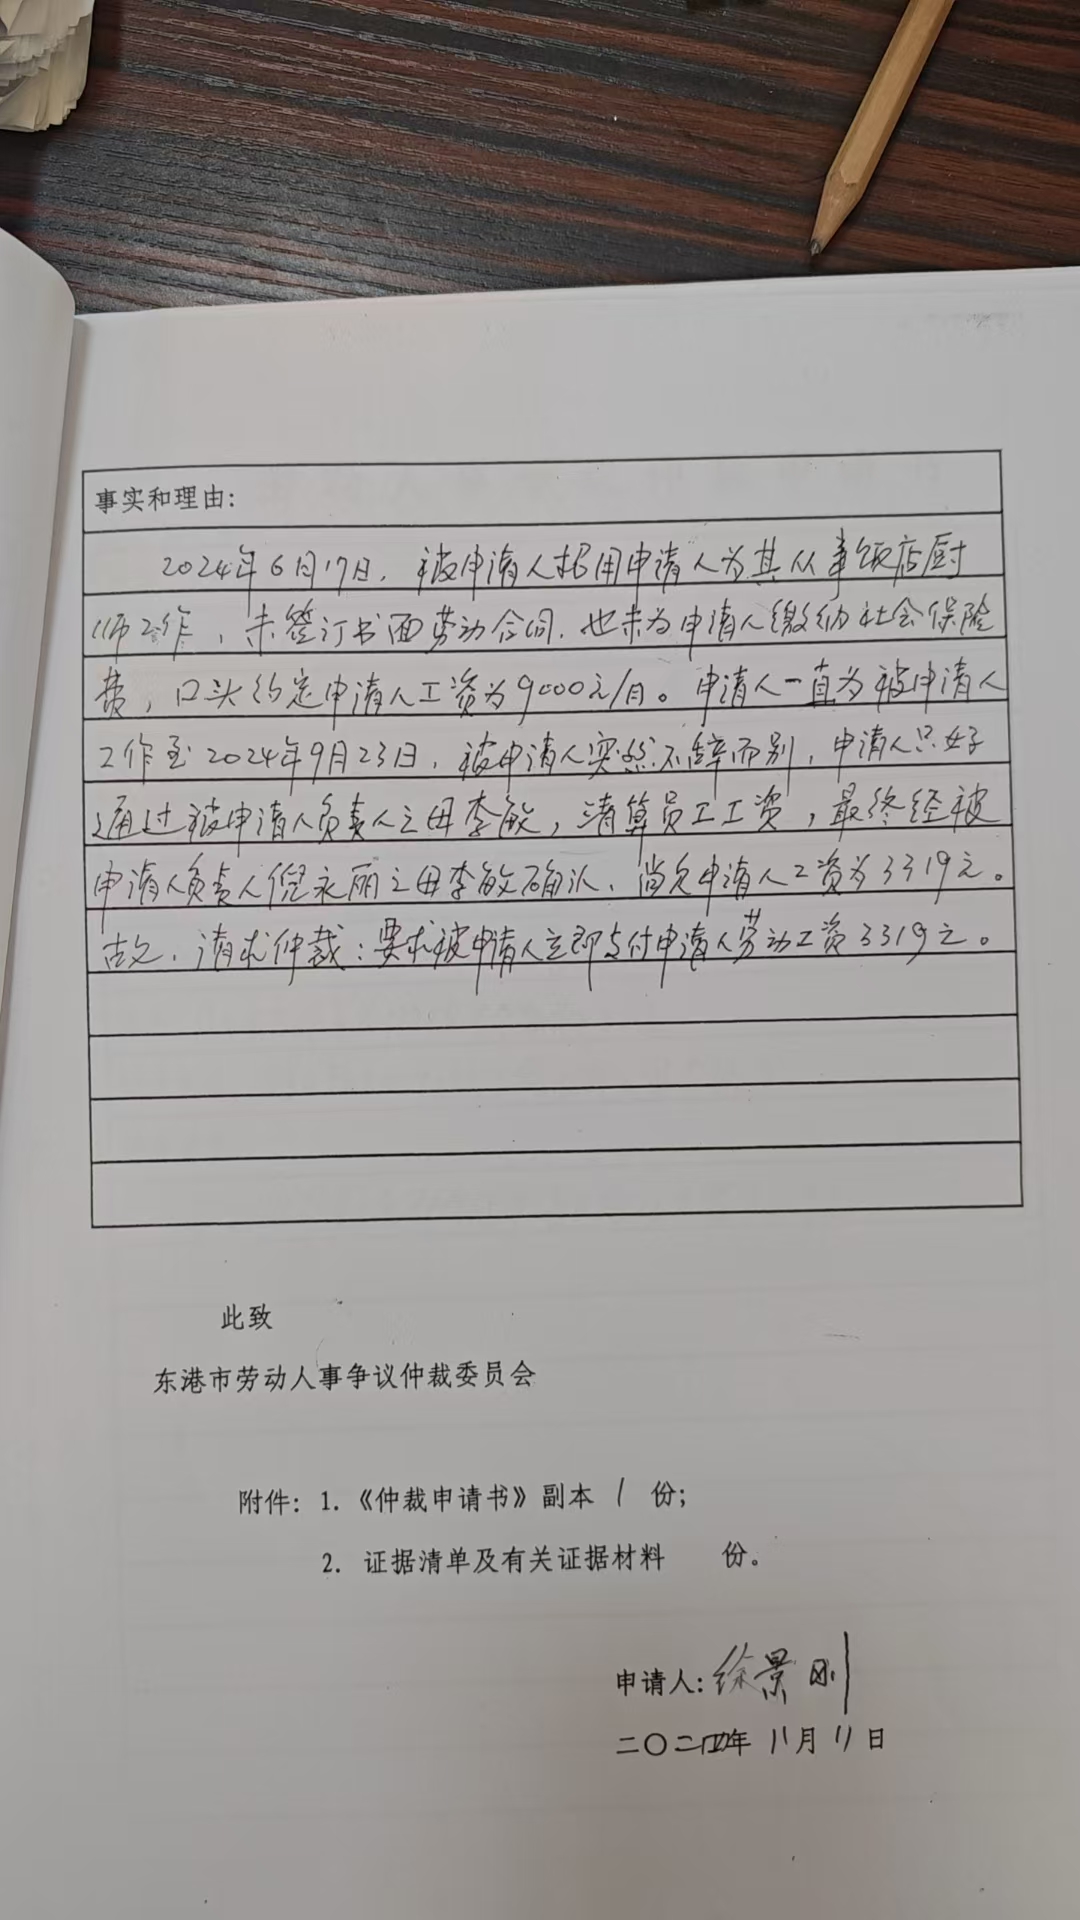 事实和理由：
2024年6月17日，被申请人招用申请人为其从事饭店厨
师工作，未签订书面劳动合同，也未为申请人缴纳社会保险
费，口头约定申请人工资为9000元/月。申请人一直为被申请人
工作至2024年9月23日，被申请人突然不辞而别，申请人只好
通过被申请人负责人之母李敏，清算员工工资，最终经被
申请人负责人倪永丽之母李敏确认，尚欠申请人工资为3319元。
故，请求仲裁：要求被申请人立即支付申请人劳动工资3319元。
此致
东港市劳动人事争议仲裁委员会
附件：1.《仲裁申请书》副本 1 份；
2. 证据清单及有关证据材料 份。
申请人：徐景刚
二〇二四年 11月 11日